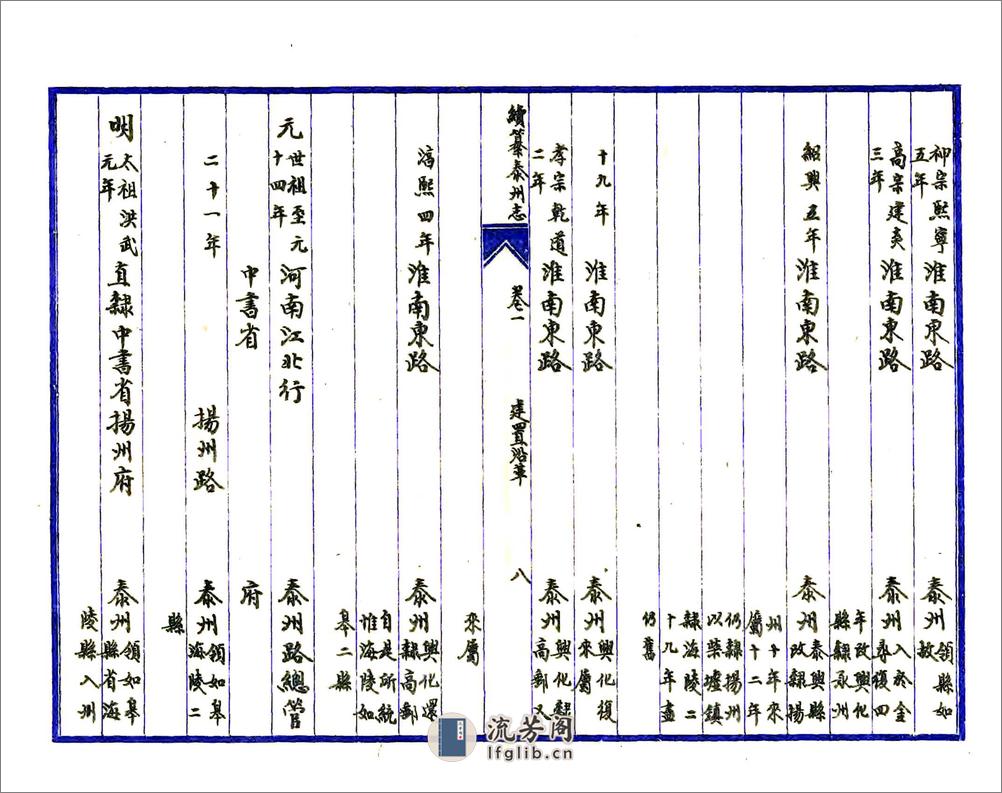 神宗熙寧五年 淮南東路 泰州 領縣如故
高宗建炎三年 淮南東路 泰州 入於金尋復四
年改興化縣隸承州
紹興五年 淮南東路 泰州 泰興縣改隸揚
州十年來屬十二年
仍隸揚州以柴墟鎮
隸海陵二十九年盡
仍舊
十九年 淮南東路 泰州 興化復來屬
孝宗乾道二年 淮南東路 泰州 興化高郵又
來屬
續纂泰州志 卷一 建置沿革 八
淳熙四年 淮南東路 泰州 興化還隸高郵
自是所統惟海陵如
皋二縣
元 世祖至元十四年 河南江北行 泰州路總管
中書省 府
二十一年 揚州路 泰州 領如皋海陵二
縣
明 太祖洪武元年 直隸中書省揚州府 泰州 領如皋縣省海
陵縣入州
流芳阁
lfglib.cn